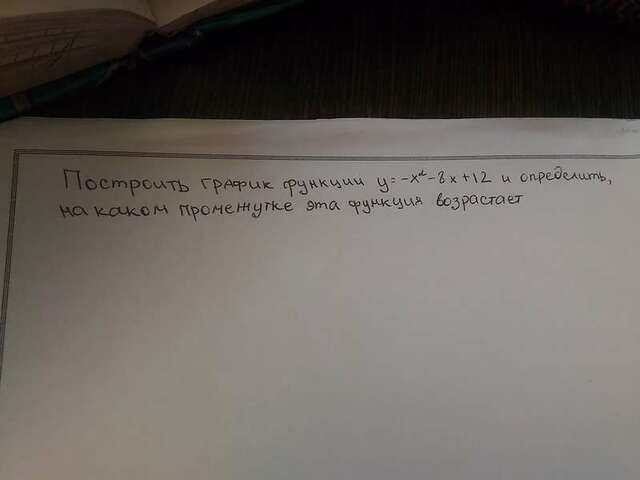 Построить график функции y=-x²-8x+12 и определить,
на каком промежутке эта функция возрастает